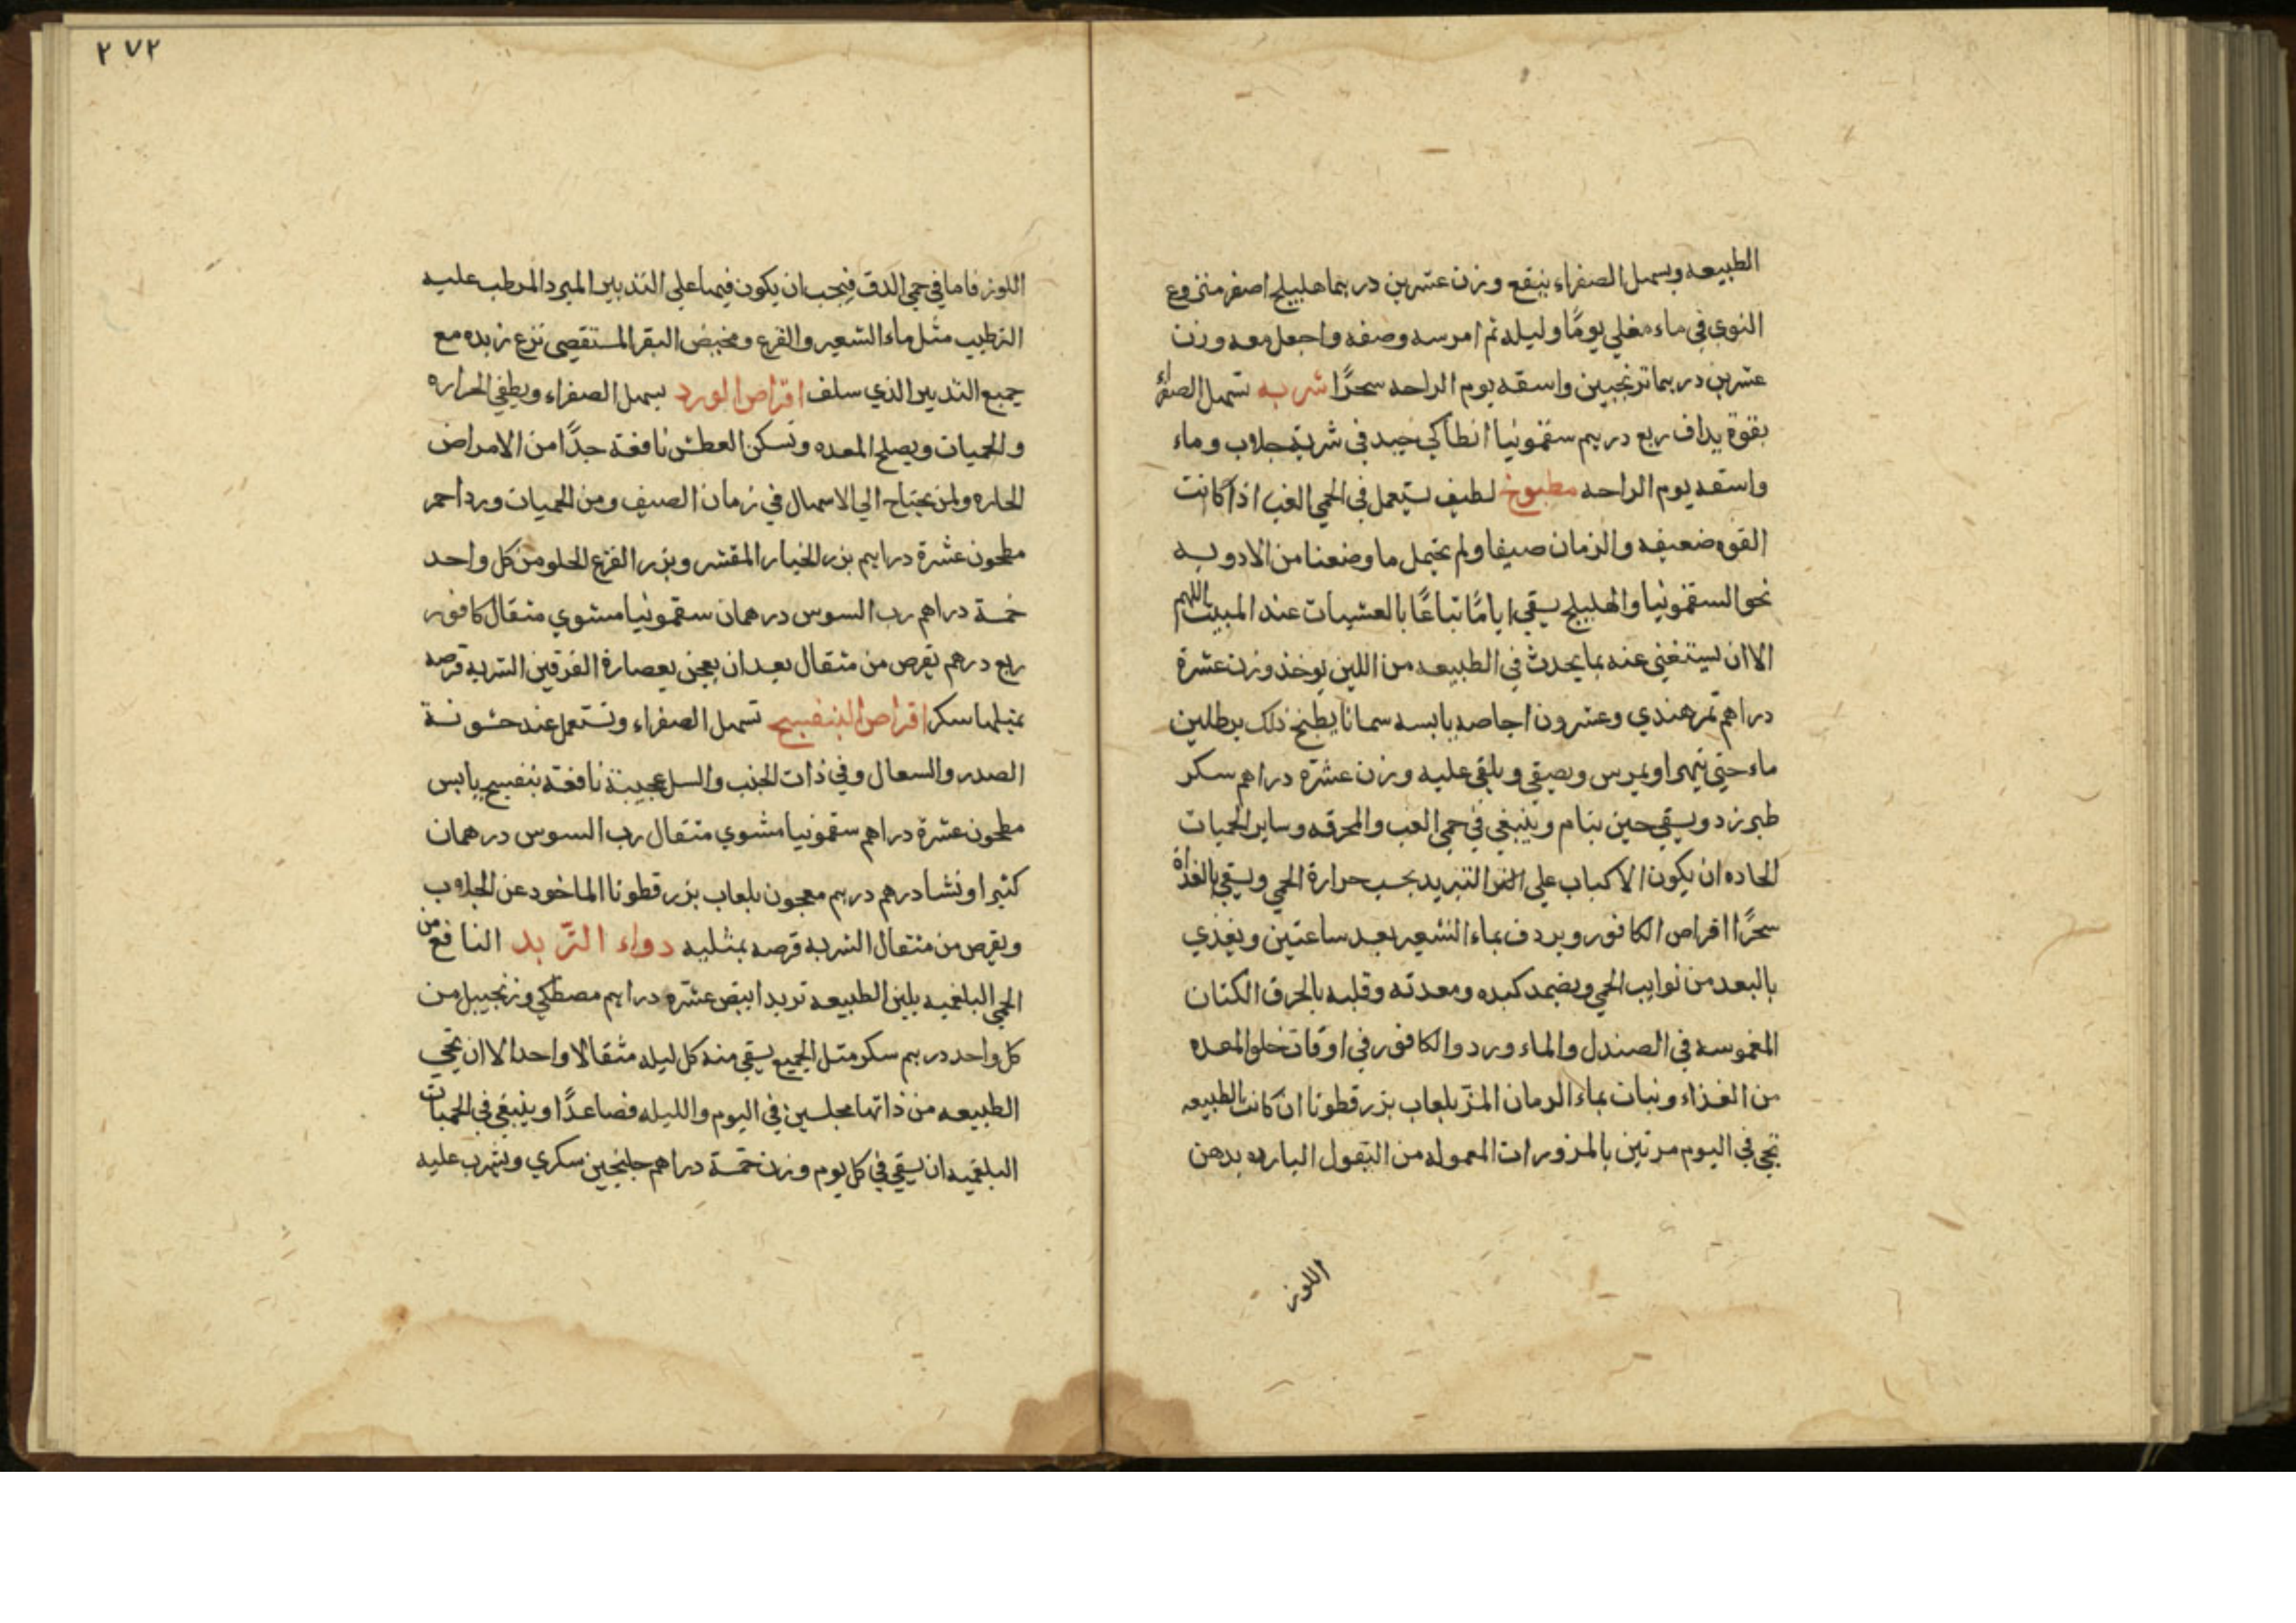 الطبيعه ويسهل الصفراء ينقع وزن عشرين درهما هليلج اصفر منزوع
النوي في ماء مغلي يومًا وليله ثم امرسه وصفه واجعل معه وزن
عشرين درهما ترنجبين واسقه يوم الراحه سحرًا شربه تسهل الصفراء
بقوة يداف ربع درهم سقمونيا انطاكي جيد في شربة جلاب وماء
واسقه يوم الراحه مطبوخ لطيف يستعمل في الحمي الغب اذا كانت
القوه ضعيفه والزمان صيفا ولم يحتمل ما وصفنا من الادويه
نحو السقمونيا والهليلج يسقي ايامًا تباعًا بالعشيات عند المبيت اللهم
الا ان يستغني عنه بما يحدث في الطبيعه من اللين يوخذ وزن عشرة
دراهم تمر هندي وعشرون اجاصه يابسه سمانا يطبخ ذلك برطلين
ماء حتي يتهرا ويمرس ويصفي ويلقي عليه وزن عشرة دراهم سكر
طبرزد ويسقي حين ينام وينبغي في حمي الغب والمحرقه وساير الحميات
الحاده ان يكون الاكباب علي التبريد بحسب حرارة الحمي ويسقي بالغداه
سحرًا اقراص الكافور ويردف بماء الشعير بعد ساعتين ويغذي
بالبعد من نوايب الحمي ويضمد كبده ومعدته وقلبه بالخرق الكتان
المغموسه في الصندل والماء ورد والكافور في اوقات خلو المعده
من الغذاء ونبات بماء الرمان المز بلعاب بزر قطونا ان كانت الطبيعه
تجي في اليوم مرتين بالمزورات المعموله من البقول البارده بدهن
اللوز
٢٧٢
اللوز فاما في حمي الدق فيجب ان يكون فيما علي التدبير المبرد المرطب عليه
الترطيب مثل ماء الشعير والقرع ومخيض البقر المستقصي نزع زبده مع
جميع التدبير الذي سلف اقراص الورد يسهل الصفراء ويطفي الحراره
والحميات ويصلح المعده وتسكن العطش نافعة جدًا من الامراض
الحاره ولمن يحتاج الي الاسهال في زمان الصيف ومن الحميات ورد احمر
مطحون عشرة دراهم بزر الخيار المقشر وبزر القرع الحلو من كل واحد
خمسة دراهم رب السوس درهمان سقمونيا مشوي مثقال كافور
ربع درهم تقرص من مثقال بعد ان يعجن بعصارة الفرفين الشربه قرصه
بمثيلها سكر اقراص البنفسج تسهل الصفراء وتستعمل عند خشونة
الصدر والسعال وفي ذات الجنب والسل عجيبة نافعة بنفسج يابس
مطحون عشرة دراهم سقمونيا مشوي مثقال رب السوس درهمان
كثيرا ونشا درهم درهم معجون بلعاب بزر قطونا الماخود عن الجلاب
ويقرص من مثقال الشربه قرصه بمثليه دواء التّربد النافع من
الحمي البلغميه يلين الطبيعه تربد ابيض عشره دراهم مصطكي وزنجبيل من
كل واحد درهم سكر مثل الجميع يسقي منه كل ليله مثقالا واحدا الا ان تجي
الطبيعه من ذاتها مجلسين في اليوم والليله فصاعدًا وينبغي في الحميات
البلغميه ان يسقي في كل يوم وزن خمسة دراهم جلنجبين سكري ويشرب عليه